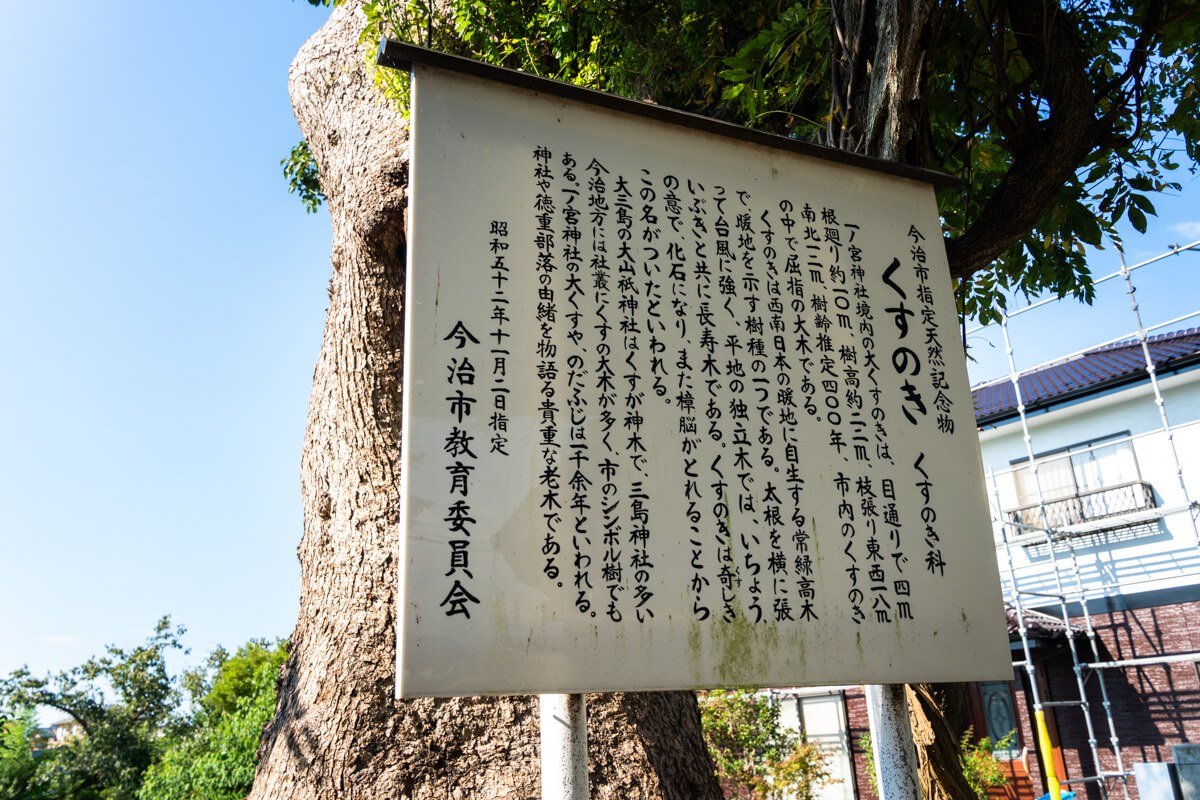 今治市指定天然記念物
くすのき　くすのき科
一ノ宮神社境内の大くすのきは、目通りで四m
根廻り約一〇m、樹高約二二m、枝張り東西一八m
南北二二m、樹齢推定四〇〇年、市内のくすのき
の中で屈指の大木である。
くすのきは西南日本の暖地に自生する常緑高木
で、暖地を示す樹種の一つである。太根を横に張
って台風に強く、平地の独立木では、いちょう、
いぶきと共に長寿木である。くすのきは奇しき
の意で、化石になり、また樟脳がとれることから
この名がついたといわれる。
大三島の大山祇神社はくすが神木で、三島神社の多い
今治地方には社叢にくすの大木が多く、市のシンボル樹でも
ある。一ノ宮神社の大くすや、のだふじは一千余年といわれる。
神社や徳重部落の由緒を物語る貴重な老木である。
昭和五十二年十一月二日指定
今治市教育委員会